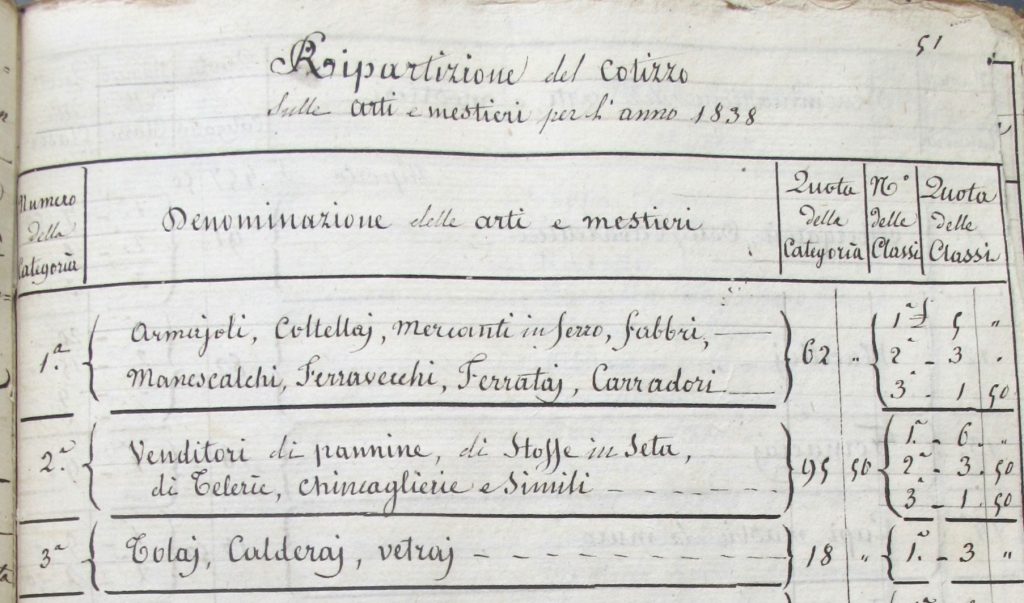 51
Ripartizione del Cotizzo
Sulle arti e mestieri per l'anno 1838
Numero della Categoria
Denominazione delle arti e mestieri
Quota della Categoria
N.° delle Classi
Quota delle Classi
1.ª Armajoli, Coltellaj, Mercanti in ferro, fabbri, 62 " 1ª £ 5 "
Manescalchi, Ferravecchi, Ferrataj, Carradori 2ª - 3 "
3ª - 1 50
2.ª Venditori di pannine, di Stoffe in Seta, 95 50 1.ª - 6 "
di Telerie, Chincaglierie e Simili 2ª - 3 50
3ª - 1 50
3.ª Tolaj, Calderaj, vetraj 18 " 1.ª - 3 "